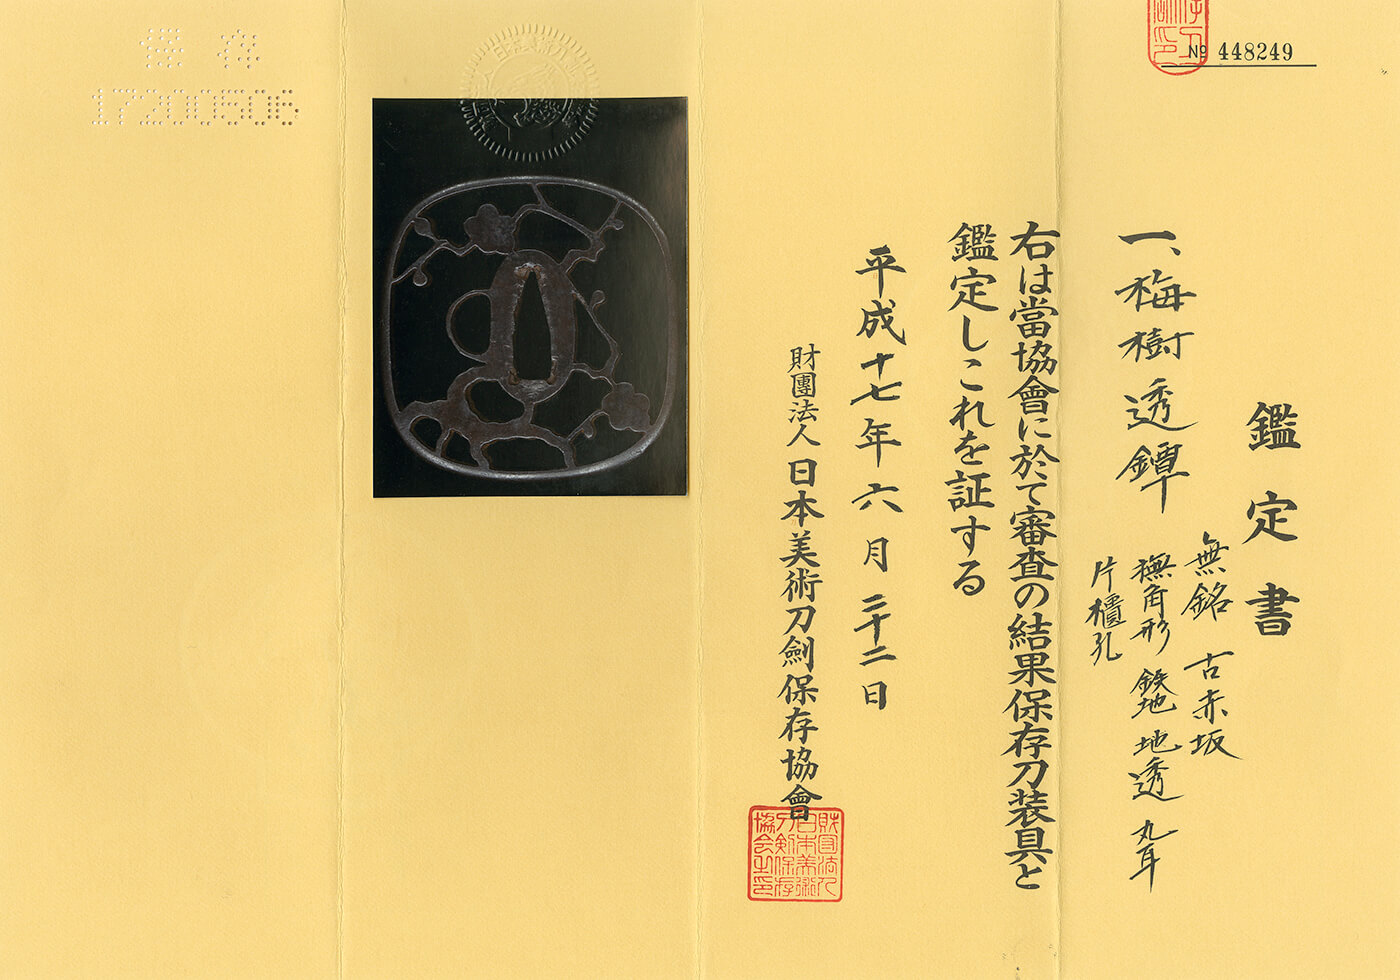 № 448249
鑑定書
一、梅樹透鐔
無銘 古赤坂
撫角形 鉄地 地透 丸耳
片櫃孔
右は當協會に於て審査の結果保存刀装具と
鑑定しこれを証する
平成十七年六月二十二日
財團法人日本美術刀劍保存協會
財団法人
日本美術
刀剣保存
協会之印
保存
17200506